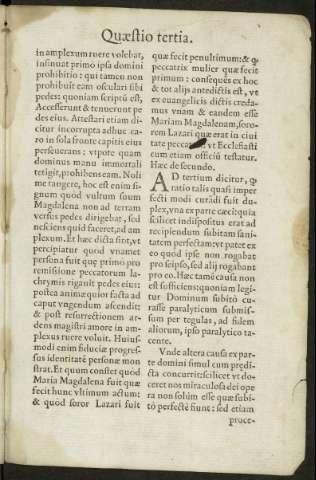 Quæstio tertia.
in amplexum ruere volebat,
insinuat primo ipsa domini
prohibitio: qui tamen non
prohibuit eam osculari sibi
pedes: quoniam scriptũ est,
Accesserunt & tenuerunt pe
des eius. Attestari etiam di-
citur incorrupta adhuc ca-
ro in sola fronte capitis eius
perseuerans: vtpote quam
dominus manu immortali
tetigit, prohibens eam. Noli
me tangere, hoc est enim si-
gnum quòd vultum suum
Magdalena non ad terram
versus pedes dirigebat, sed
nesciens quid faceret, ad am
plexum. Et hæc dicta sint, vt
percipiatur quòd vnamet
persona fuit quę primo pro
remissione peccatorum la-
chrymis rigauit pedes eius:
postea animæquior facta ad
caput vngendum ascendit:
& post resurrectionem ar-
dens magistri amore in am-
plexus ruere voluit. Huius-
modi enim fiduciæ progres-
sus identitatẽ personæ mon
strat. Et quum constet quòd
Maria Magdalena fuit quæ
fecit hunc vltimum actum:
& quòd soror Lazari fuit
quæ fecit penultimum: & q
peccatrix mulier quæ fecit
primum: consequẽs ex hoc
& tot alijs antedictis est, vt
ex euangelicis dictis creda-
mus vnam & eandem esse
Mariam Magdalenam, soro-
rem Lazari quæ erat in ciui
tate peccatrix, vt Ecclesiasti
cum etiam officiũ testatur.
Hæc de secundo.
AD tertium dicitur, q
ratio talis quasi imper
fecti modi curãdi fuit du-
plex, vna ex parte cæci: quia
scilicet indispositus erat ad
recipiendum subitam sani-
tatem perfectam: vt patet ex
eo quòd ipse non rogabat
pro seipso, sed alij rogabant
pro eo. Hæc tamẽ causa non
est sufficiens: quoniam legi-
tur Dominum subitò cu-
rasse paralyticum submis-
sum per tegulas, ad fidem
aliorum, ipso paralytico ta-
cente.
Vnde altera causa ex par-
te domini simul cum prędi-
cta concurrit: scilicet vt do-
ceret nos miraculosa dei ope
ra non solùm esse quæ subi-
tò perfectè fiunt: sed etiam
proce-